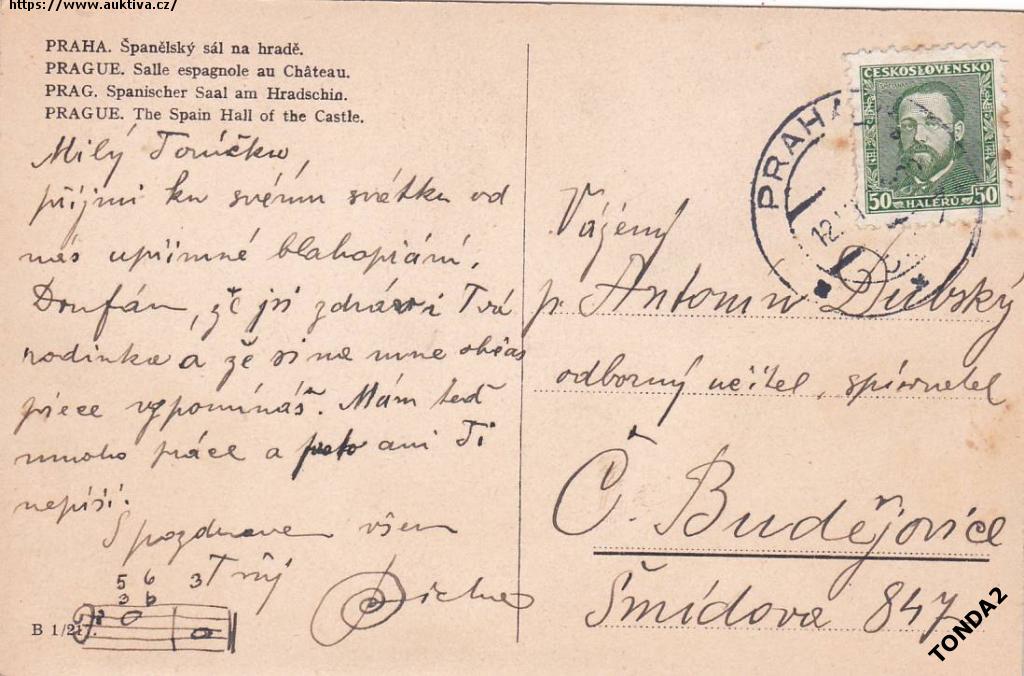 https://www.auktiva.cz/
PRAHA. Španělský sál na hradě.
PRAGUE. Salle espagnole au Château.
PRAG. Spanischer Saal am Hradschin.
PRAGUE. The Spain Hall of the Castle.
Milý Toníčku,
přijmi ku svému svátku od
nás upřímné blahopřání.
Doufám, že jsi zdráv i Tvá
rodinka a že si na mne občas
přece vzpomínáš. Mám teď
mnoho práce a proto ani Ti
nepíši.
S pozdravem všem
Tvůj
5 6 3
3 b
B 1/217.
ČESKOSLOVENSKO
50 HALÉRŮ 50
PRAHA
12.
Vážený
p. Antonín Dubský
odborný učitel, spisovatel
Č. Budějovice
Šmídova 847
TONDA2